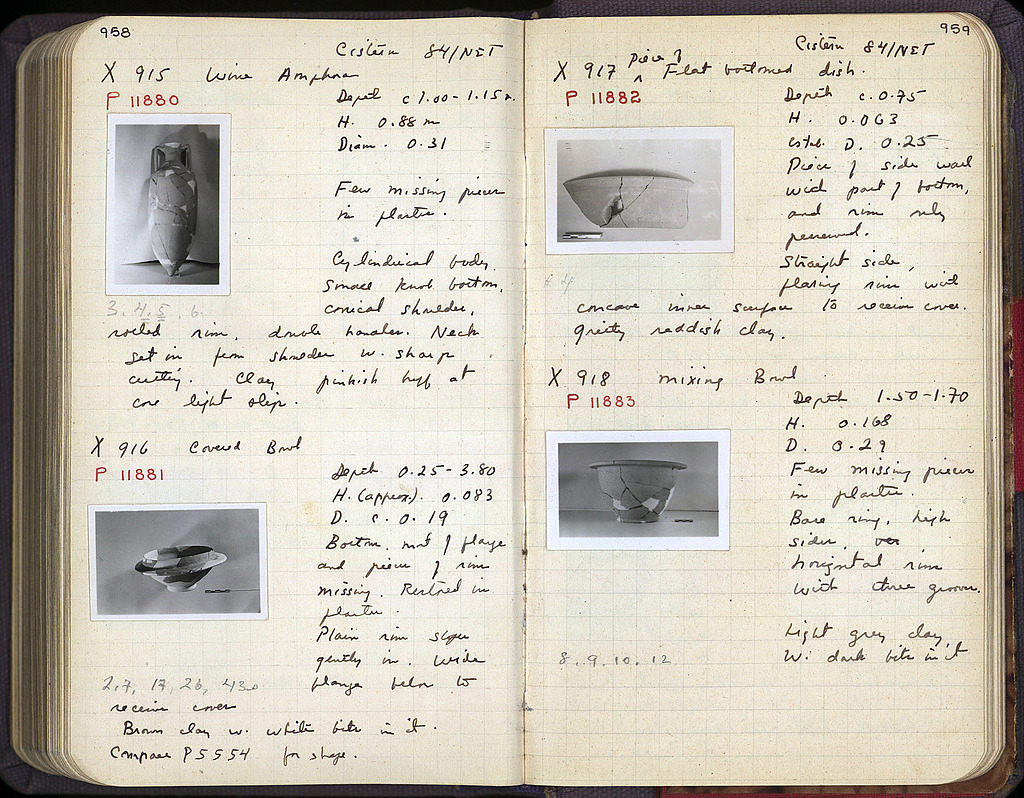 958
Cistern 84/NET
X 915 Wine Amphora
P 11880
Depth c 1.00 - 1.15 m.
H. 0.88 m
Diam. 0.31
Few missing pieces
in plaster.
Cylindrical body,
small knob bottom,
conical shoulder,
3. 4. 5. 6.
rolled rim, double handles. Neck
set in from shoulder w. sharp
cutting. Clay pinkish buff at
core light slip.
X 916 Covered Bowl
P 11881
Depth 0.25 - 3.80
H. (approx.). 0.083
D. c. 0.19
Bottom, most of flange
and pieces of rim
missing. Restored in
plaster.
Plain rim slopes
gently in. Wide
2, 7, 17, 26, 43
flange below to
receive cover
Brown clay w. white bits in it.
Compare P 5554 for shape.
959
Cistern 84/NET
X 917 Piece of Flat bottomed dish.
P 11882
Depth c. 0.75
H. 0.063
estd. D. 0.25
Piece of side wall
with part of bottom,
and rim only
preserved.
Straight side,
flaring rim with
concave inner surface to receive cover.
gritty reddish clay.
X 918 Mixing Bowl
P 11883
Depth 1.50 - 1.70
H. 0.168
D. 0.29
Few missing pieces
in plaster.
Base ring, high
sides,
horizontal rim
with three grooves.
Light grey clay,
8. 9. 10. 12
W. dark bits in it